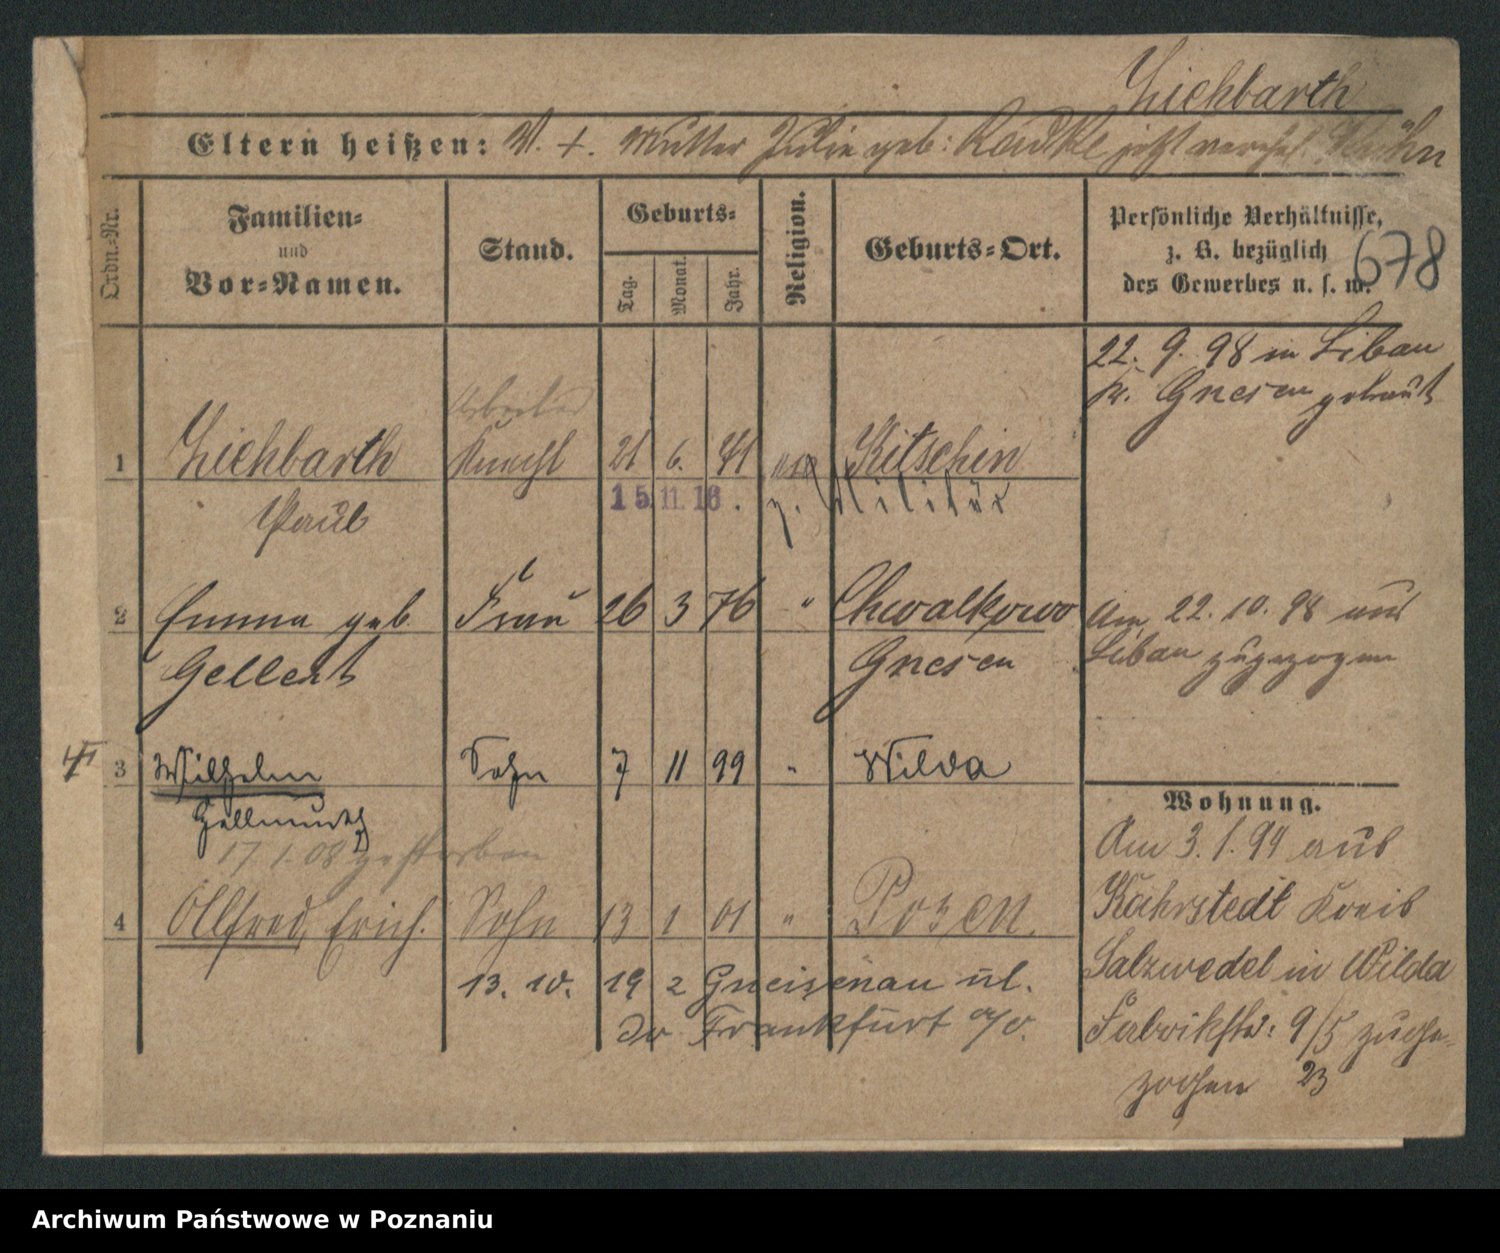 Ziehbarth
Eltern heißen: V. +. Mutter Julie geb: Radtke jetzt Kühn
Ordn.=Nr.
Familien=
und
Vor=Namen.
Stand.
Geburts=
Tag.
Monat.
Jahr.
Religion.
Geburts=Ort.
Persönliche Verhältnisse,
z. B. bezüglich
des Gewerbes u. s. w.
678
22. 9. 98 in Libau
Kr. Gnesen getraut
Arbeiter
1 Ziehbarth Knecht 21 6. 71 Kitschin
15.11.16. z. Militär
Paul
2 Emma geb Frau 26 3 76 " Chwalkowo
Gellert Gnesen
Am 22. 10. 98 aus
Libau zugezogen
3 Wilhelm Sohn 7 11 99 " Wilda
Hellmuth
17. 1. 08 gestorben
4 Allfred, Erich. Sohn 13 1 01 " Posen.
13. 10. 19 2 Gneisenau ul.
Frankfurt a/O.
Wohnung.
Am 3. 1. 99 aus
Kahrstedt Kreis
Salzwedel in Wilda
Fabrikstr: 9/5 zuge-
zogen 23
Archiwum Państwowe w Poznaniu